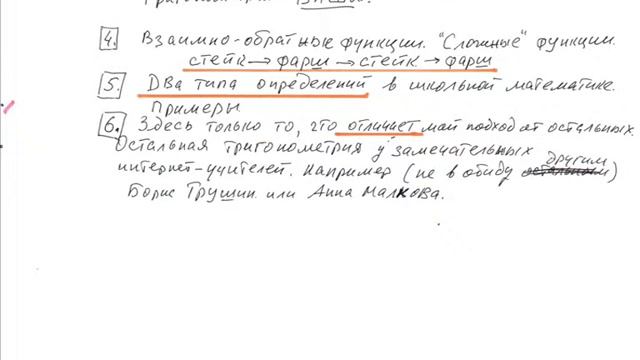 4. Взаимно-обратные функции. "Сложные" функции.
стейк → фарш → стейк → фарш
5. Два типа определений в школьной математике.
Примеры
6. Здесь только то, что отличает мой подход от остальных.
Остальная тригонометрия у замечательных
другим
интернет-учителей. Например (не в обиду остальным)
Борис Трушин или Анна Малкова.